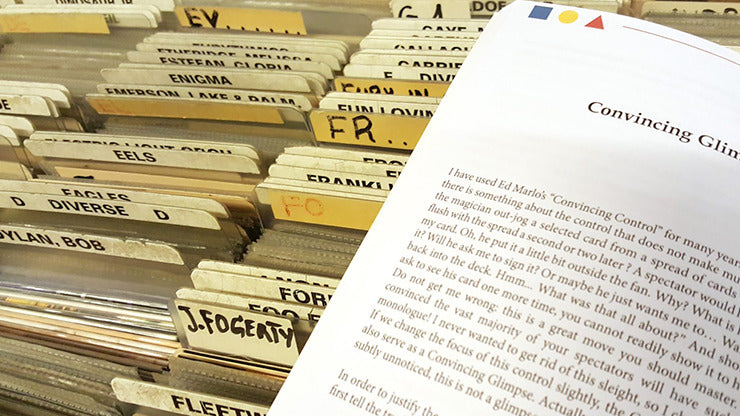 EV...
ETHERIDGE, MELISSA
ESTEFAN, GLORIA
ENIGMA
EMERSON, LAKE & PALM
ELECTRIC LIGHT ORCH
EELS
EAGLES
D DIVERSE D
DYLAN, BOB
GA
GAYE
GALLAGH
GABRIE
F DIVE
FUN LOVIN
FR...
FRANKLI
FO
FOR
FOO F
J.FOGERTY
FLEETW
Convincing Glim
I have used Ed Marlo's "Convincing Control" for many year
there is something about the control that does not make mu
the magician out-jog a selected card from a spread of cards
flush with the spread a second or two later? A spectator would
my card. Oh, he put it a little bit outside the fan. Why? What is
it? Will he ask me to sign it? Or maybe he just wants me to... Wa
back into the deck. Hmm... What was that all about?" And she
ask to see his card one more time, you cannot readily show it to h
Do not get me wrong: this is a great move you should master.
convinced the vast majority of your spectators will have
monologue! I never wanted to get rid of this sleight, so
If we change the focus of this control slightly, the
also serve as a Convincing Glimpse. Actually
subtly unnoticed, this is not a glimps
In order to justify the
first tell the tr